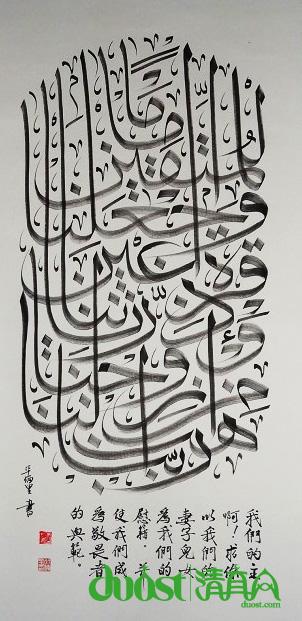 ربنا هب لنا
من أزواجنا
وذرياتنا
قرة أعين
واجعلنا
للمتقين
إماما
我們的主
啊！求你
以我們的
妻子兒女
為我們的
慰藉．并
使我們成
為敬畏者
的典範。
書
duost
duost.com